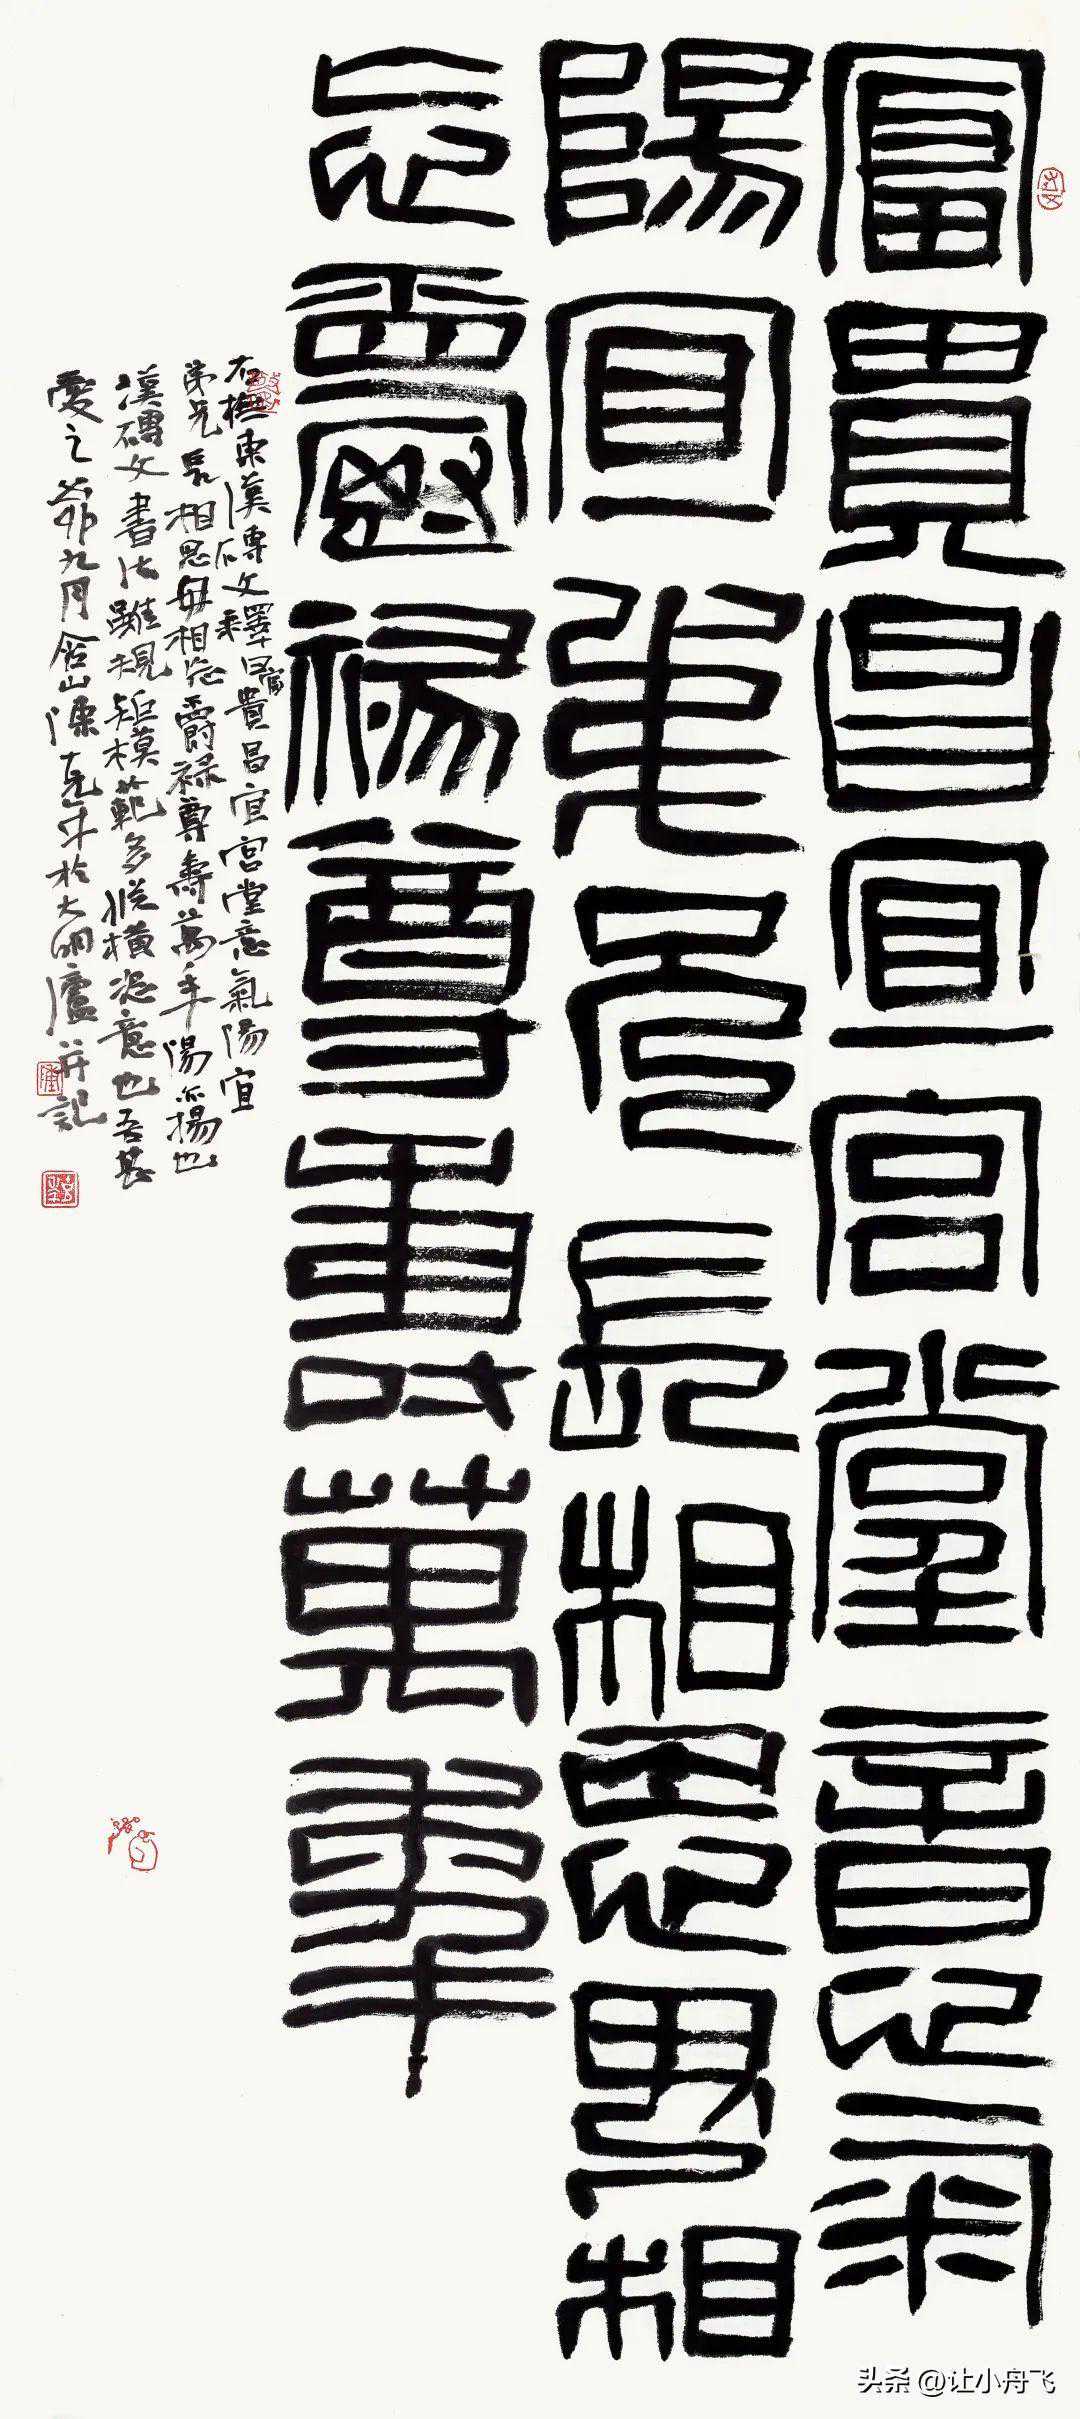 富貴昌宜宮堂意氣
陽宜弟兄長相思毋相
忘爵祿尊壽萬年
右橅東漢磚文釋曰富貴昌宜宮堂意氣陽宜
弟兄長相思毋相忘爵祿尊壽萬年陽亦揚也
漢磚文書法雖規矩模範多縱橫恣意也吾甚
愛之癸卯九月含山陳克年於大明廬并記
头条 @让小舟飞